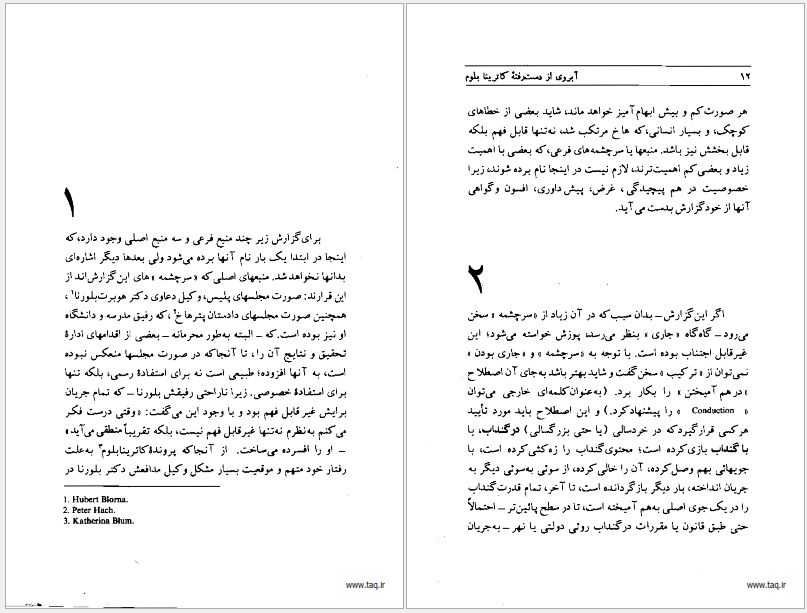 ۱
برای گزارش زیر چند منبع فرعی و سه منبع اصلی وجود دارد، که
اینجا در ابتدا یک بار نام آنها برده می‌شود ولی بعدها دیگر اشاره‌ای
بدانها نخواهد شد. منبعهای اصلی که «سرچشمه» های این گزارش‌اند از
این قرارند: صورت مجلسهای پلیس، وکیل دعاوی دکتر هوبرت بلورنا۱،
همچنین صورت مجلسهای دادستان پترهاخ۲، که رفیق مدرسه و دانشگاه
او نیز بوده است. که ــ البته به‌طور محرمانه ــ بعضی از اقدامهای ادارهٔ
تحقیق و نتایج آن را، تا آنجاکه در صورت مجلسها منعکس نبوده
است، به آنها افزوده؛ طبیعی است نه برای استفادهٔ رسمی، بلکه تنها
برای استفادهٔ خصوصی. زیرا ناراحتی رفیقش بلورنا ــ که تمام جریان
برایش غیر قابل فهم بود و با وجود این می‌گفت: «وقتی درست فکر
می‌کنم به‌نظرم نه‌تنها غیرقابل فهم نیست، بلکه تقریباً منطقی می‌آید»
ــ او را افسرده می‌ساخت. از آنجاکه پروندهٔ کاترینابلوم۳ به‌علت
رفتار خود متهم و موقعیت بسیار مشکل وکیل مدافعش دکتر بلورنا در
1. Hubert Blorna.
2. Peter Hach.
3. Katherina Blum.
www.taq.ir
۱۲ آبروی از دست‌رفتهٔ کاترینا بلوم
هر صورت کم و بیش ابهام‌آمیز خواهد ماند، شاید بعضی از خطاهای
کوچک، و بسیار انسانی، که هاخ مرتکب شد، نه‌تنها قابل فهم بلکه
قابل بخشش نیز باشد. منبعها یا سرچشمه‌های فرعی، که بعضی با اهمیت
زیاد و بعضی کم اهمیت‌ترند، لازم نیست در اینجا نام برده شوند، زیرا
خصوصیت در هم پیچیدگی، غرض، پیش‌داوری، افسون و گواهی
آنها از خود گزارش بدست می‌آید.
۲
اگر این گزارش ــ بدان سبب که در آن زیاد از «سرچشمه» سخن
می‌رود ــ گاه‌گاه «جاری» بنظر می‌رسد، پوزش خواسته می‌شود؛ این
غیرقابل اجتناب بوده است. با توجه به «سرچشمه» و «جاری بودن»
نمی‌توان از «ترکیب» سخن گفت و شاید بهتر باشد به‌جای آن اصطلاح
«درهم آمیختن» را بکار برد. (به‌عنوان کلمه‌ای خارجی می‌توان
«Conduction» را پیشنهاد کرد.) و این اصطلاح باید مورد تأیید
هرکسی قرار گیرد که در خردسالی (یا حتی بزرگسالی) در گنداب، یا
با گنداب بازی کرده است؛ محتوی گنداب را زه‌کشی کرده است، با
جویهائی بهم وصل کرده، آن را خالی کرده، از سوئی به‌سوئی دیگر به
جریان انداخته، بار دیگر بازگردانده است، تا آخر، تمام قدرت گنداب
را در یک جوی اصلی به‌هم آمیخته است، تا در سطح پائین‌تر ــ احتمالاً
حتی طبق قانون یا مقررات در گنداب روئی دولتی یا نهر ــ به‌جریان
www.taq.ir